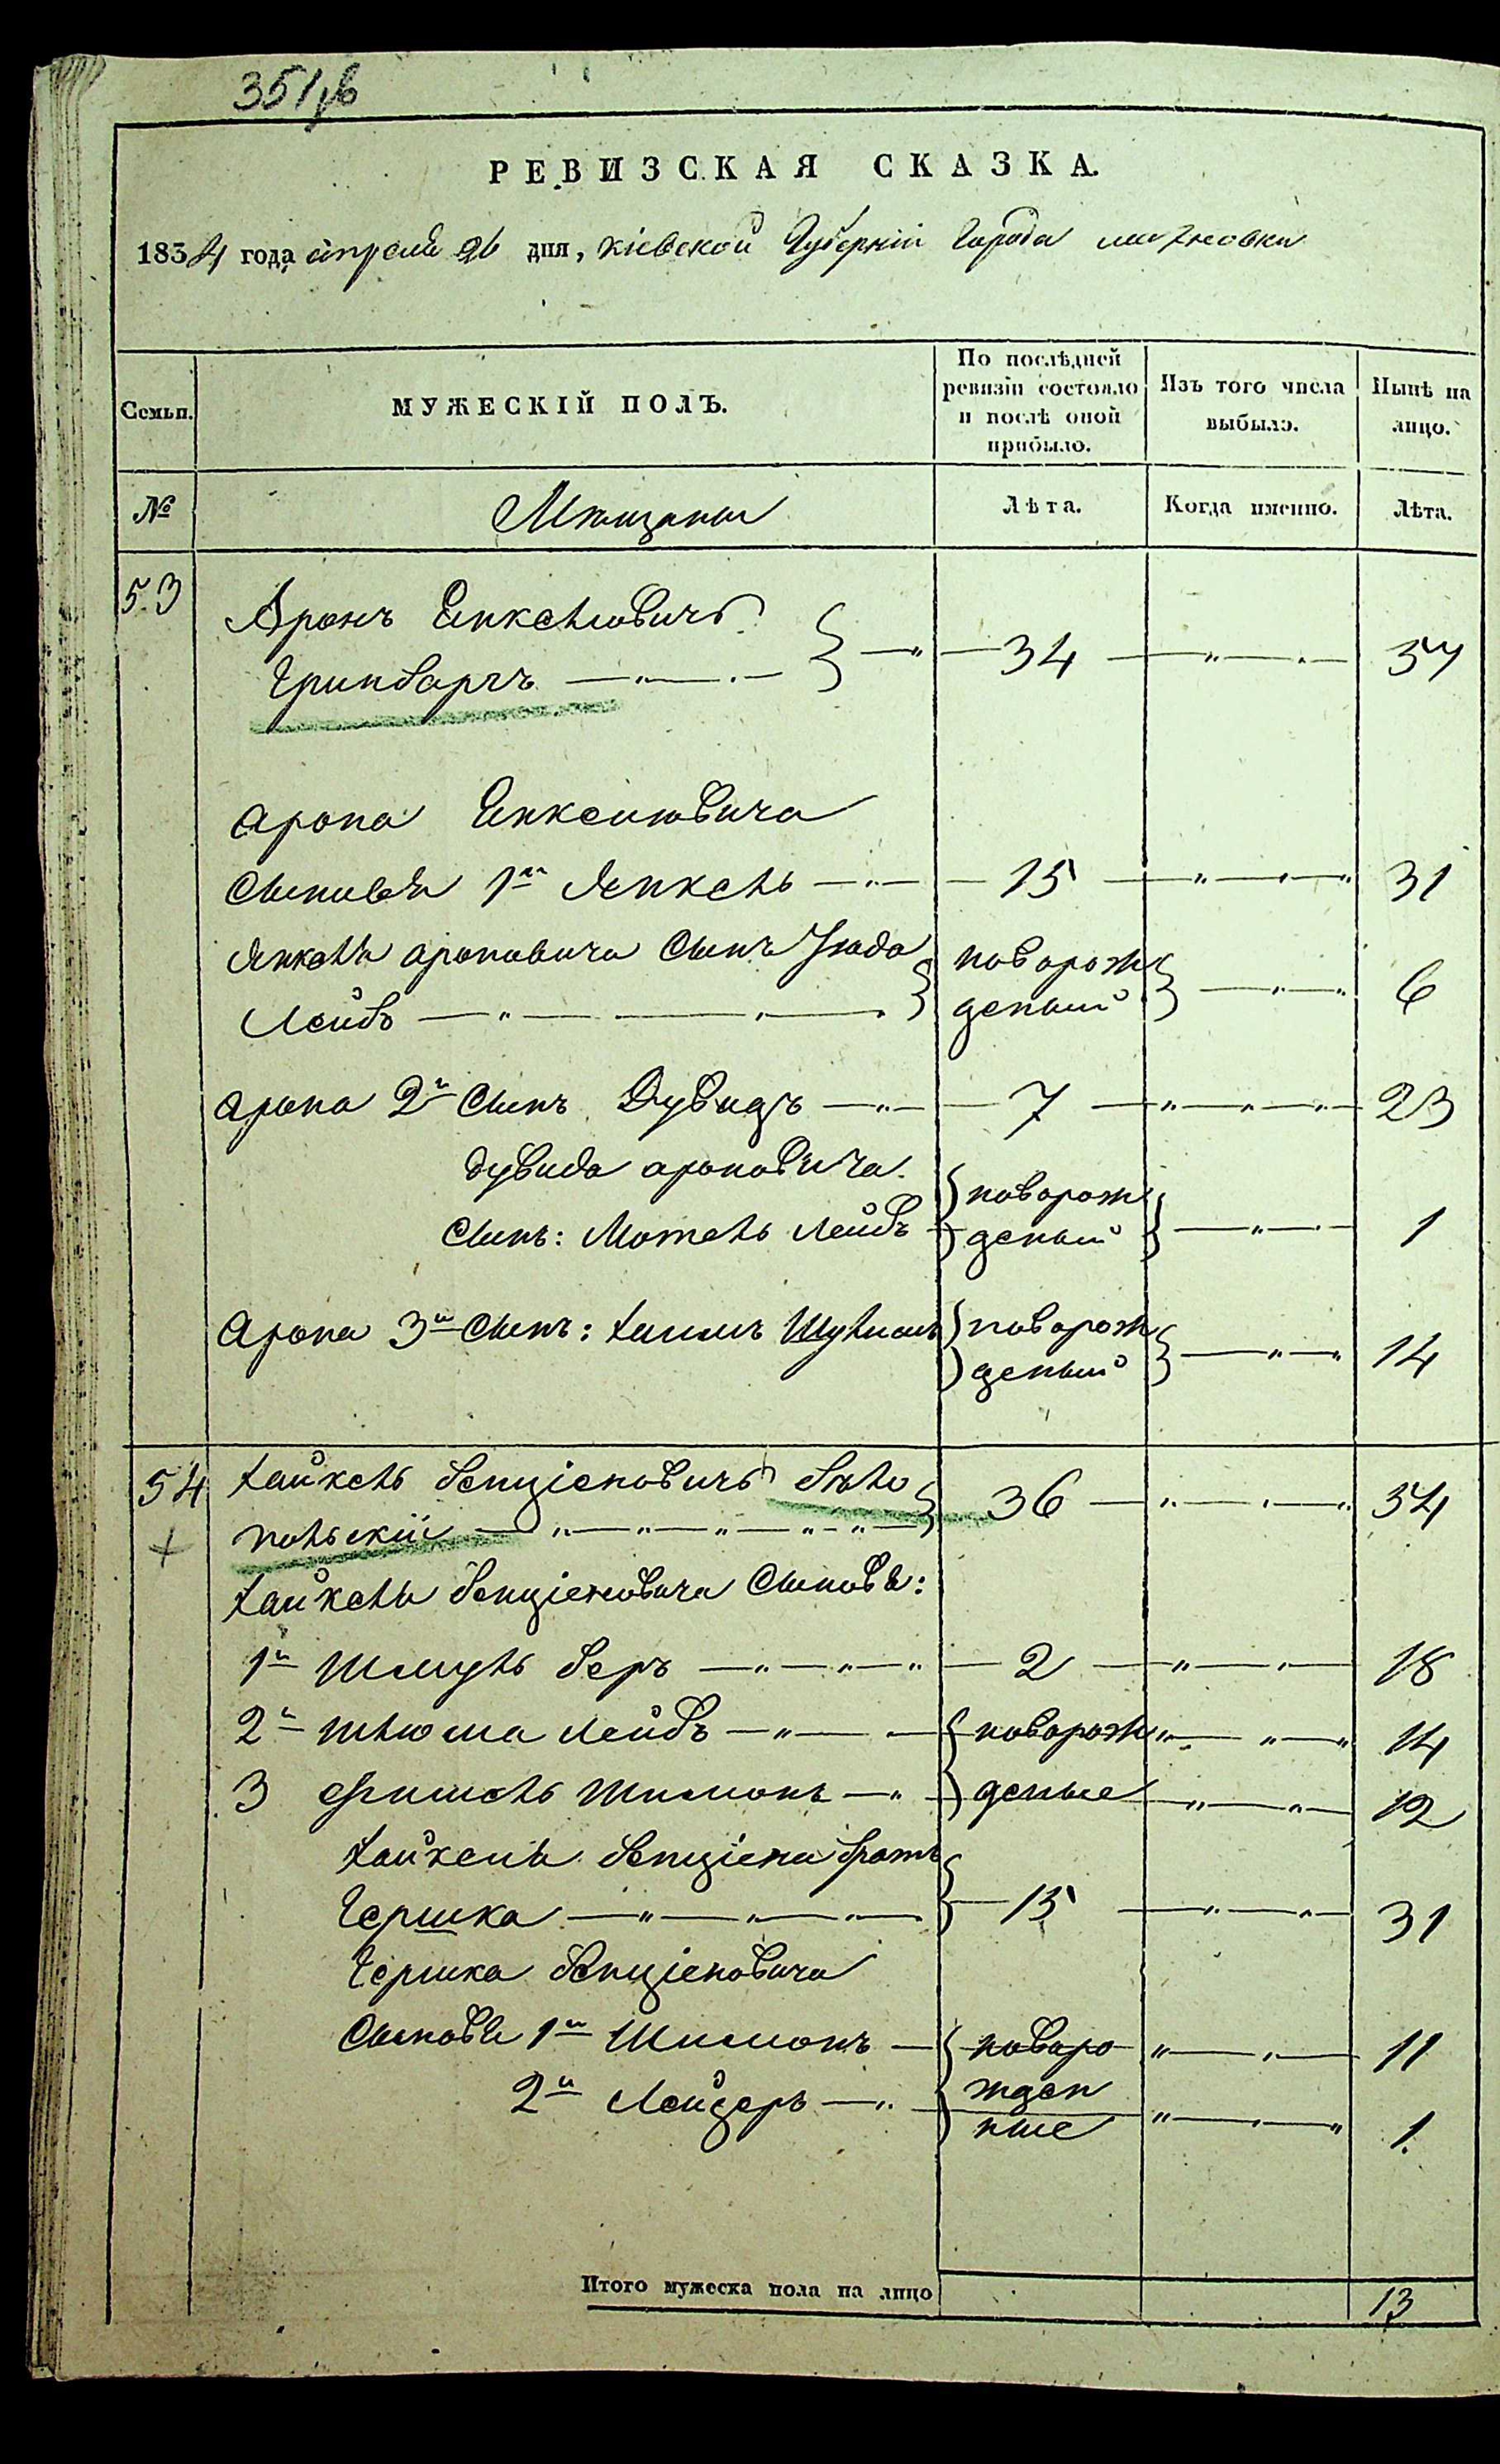 351 об
РЕВИЗСКАЯ СКАЗКА.
1834 года апреля 26 дня, Кіевской Губерніи Города Махновки
Семьи.
МУЖЕСКІЙ ПОЛЪ.
По послѣдней ревизіи состояло и послѣ оной прибыло.
Изъ того числа выбыло.
Нынѣ на лицо.
№
Мѣщаны
Лѣта.
Когда именно.
Лѣта.
53
Аронъ Енкелювичъ
Гринбаргъ — 34 — " — 57
Арона Енкелювича
Сыновья 1й Янкель — 15 — " — 31
Янкеля Ароновича Сынъ Июда новорож
Лейбъ — деный — " — 6
Арона 2й Сынъ Дувидъ — 7 — " — 23
Дувида Ароновича новорож
Сынъ: Мотель Лейбъ деный — " — 1
Арона 3й Сынъ: Хаимъ Шулимъ новорож
деный — " — 14
54 Хайкель Бенціеновичъ Бѣло
польскій — 36 — " — 54
Хайкеля Бенціеновича Сыновья:
1й Шмуль Беръ — 2 — " — 18
2й Шлюма Лейбъ — новорож " — 14
3 Фишель Шимонъ — деные " — 12
Хайкеля Бенціена братъ
Гершка — 15 — " — 31
Гершка Бенціеновича
Сыновья 1й Шимонъ — новоро " — 11
2й Лейзеръ — жден
ные " — 1.
Итого мужеска пола на лицо 13